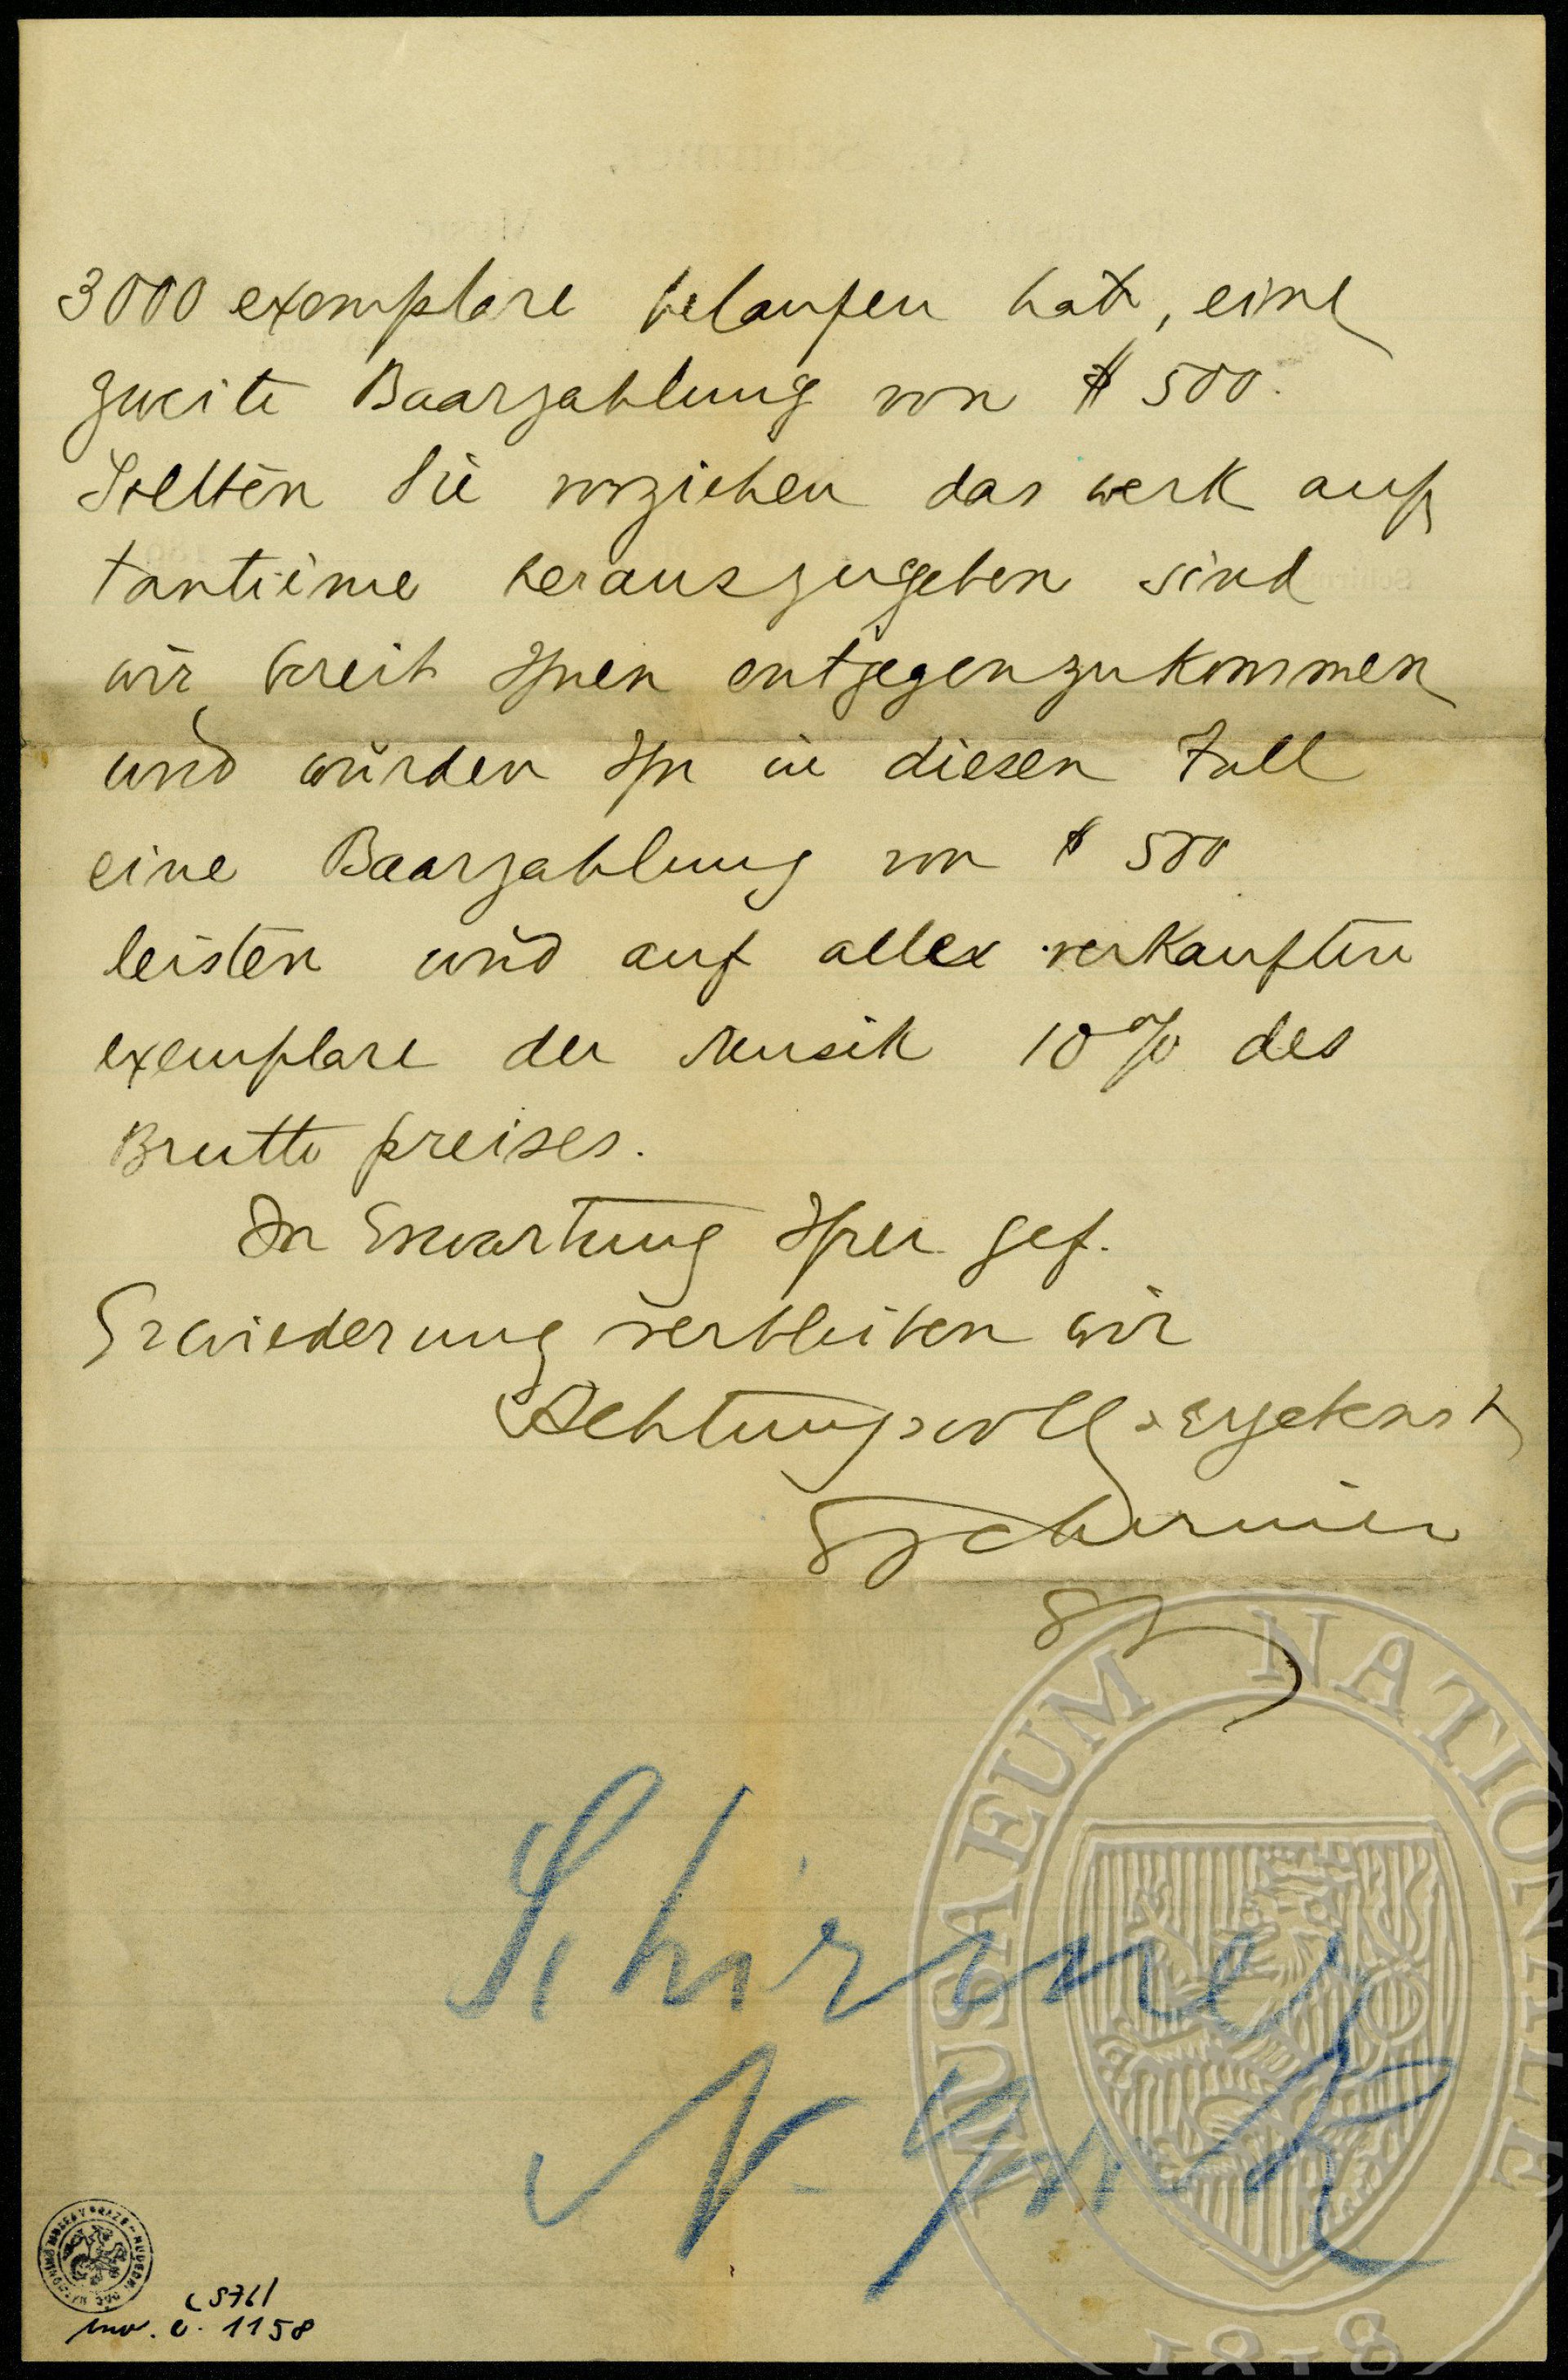 3000 exemplare belaufen hat, eine
zweite Baarzahlung von $ 500.
Sollten Sie vorziehen das werk auf
tantieme herauszugeben sind
wir bereit Ihnen entgegenzukommen
und würden Ihn in diesen Fall
eine Baarzahlung von $ 500
leisten und auf alle verkauften
exemplare der Musik 10% des
Brutto preises.
In Erwartung Ihrer gef.
Erwiederung verbleiben wir
Achtungsvoll & Ergebenst
GSchirmer
Schirmer
N. York
MUSAEUM NATIONALE
1818
inv. č. 1158